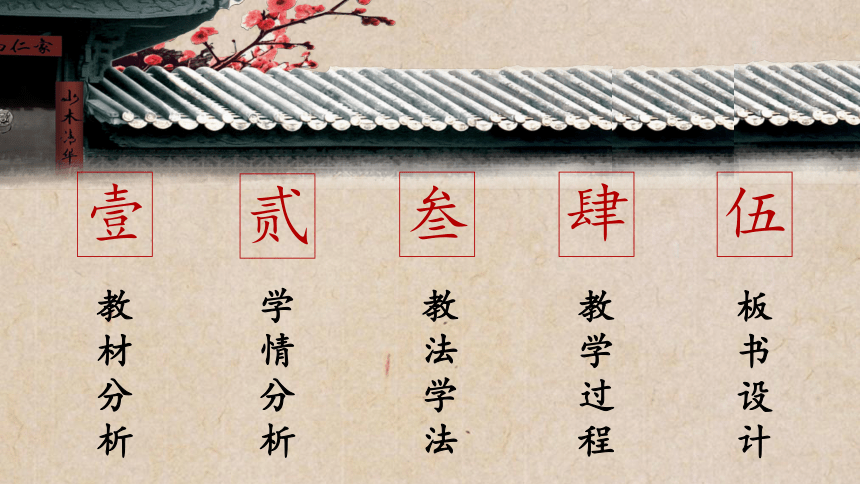 壹
教材分析
贰
学情分析
叁
教法学法
肆
教学过程
伍
板书设计